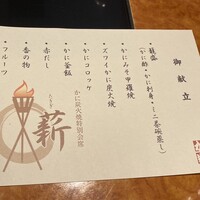 御献立
・籠盛
(かに酢・かに刺身・一二巻碗蒸し)
・かにみそ甲羅焼
・ズワイかに炭火焼
・かにコロッケ
・かに釜飯
・赤だし
・香の物
・フルーツ
かに炭火焼特別会席
たきぎ
薪